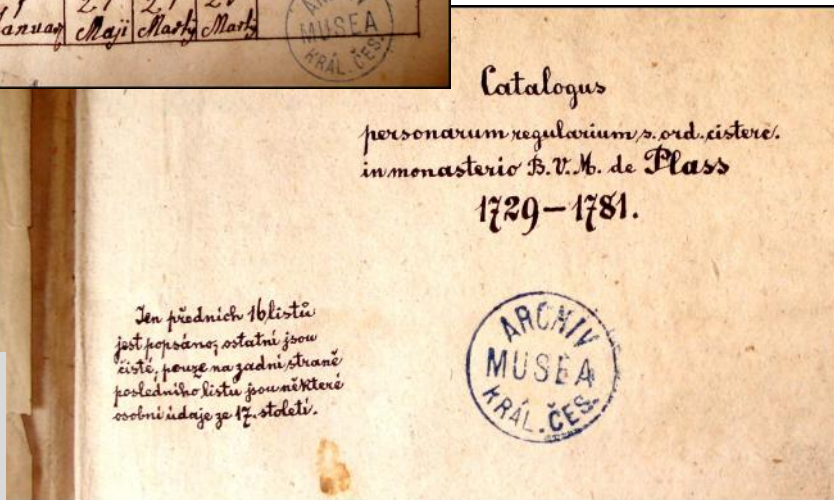 21 21 21
Januarÿ Maji Martÿ Martÿ
ARCHIV
MUSEA
KRÁL. ČES.
Catalogus
personarum regularium s. ord. cisterc.
in monasterio B.V.M. de Plass
1729–1781.
Jen předních 16 listů
jest popsáno; ostatní jsou
čisté, pouze na zadní straně
posledního listu jsou některé
osobní údaje ze 17. století.
ARCHIV
MUSEA
KRÁL. ČES.